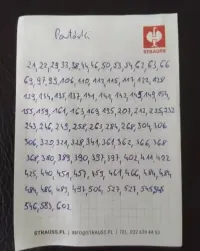 STRAUSS
21, 22, 29, 33, 38, 44, 46, 50, 53, 54, 62, 63, 66
63, 97, 99, 106, 110, 113, 115, 117, 122, 128
129, 134, 135, 137, 141, 144, 142, 149, 149, 154,
155, 159, 161, 163, 169, 195, 207, 212, 225, 232
243, 246, 249, 258, 263, 284, 268, 304, 306
306, 320, 321, 328, 341, 361, 362, 366, 368
368, 380, 389, 390, 397, 397, 402, 411, 402
425, 440, 454, 457, 459, 461, 466, 484, 484,
484, 486, 487, 497, 506, 527, 527, 545, 548
546, 583, 602
STRAUSS.PL | INFO@STRAUSS.PL | TEL.